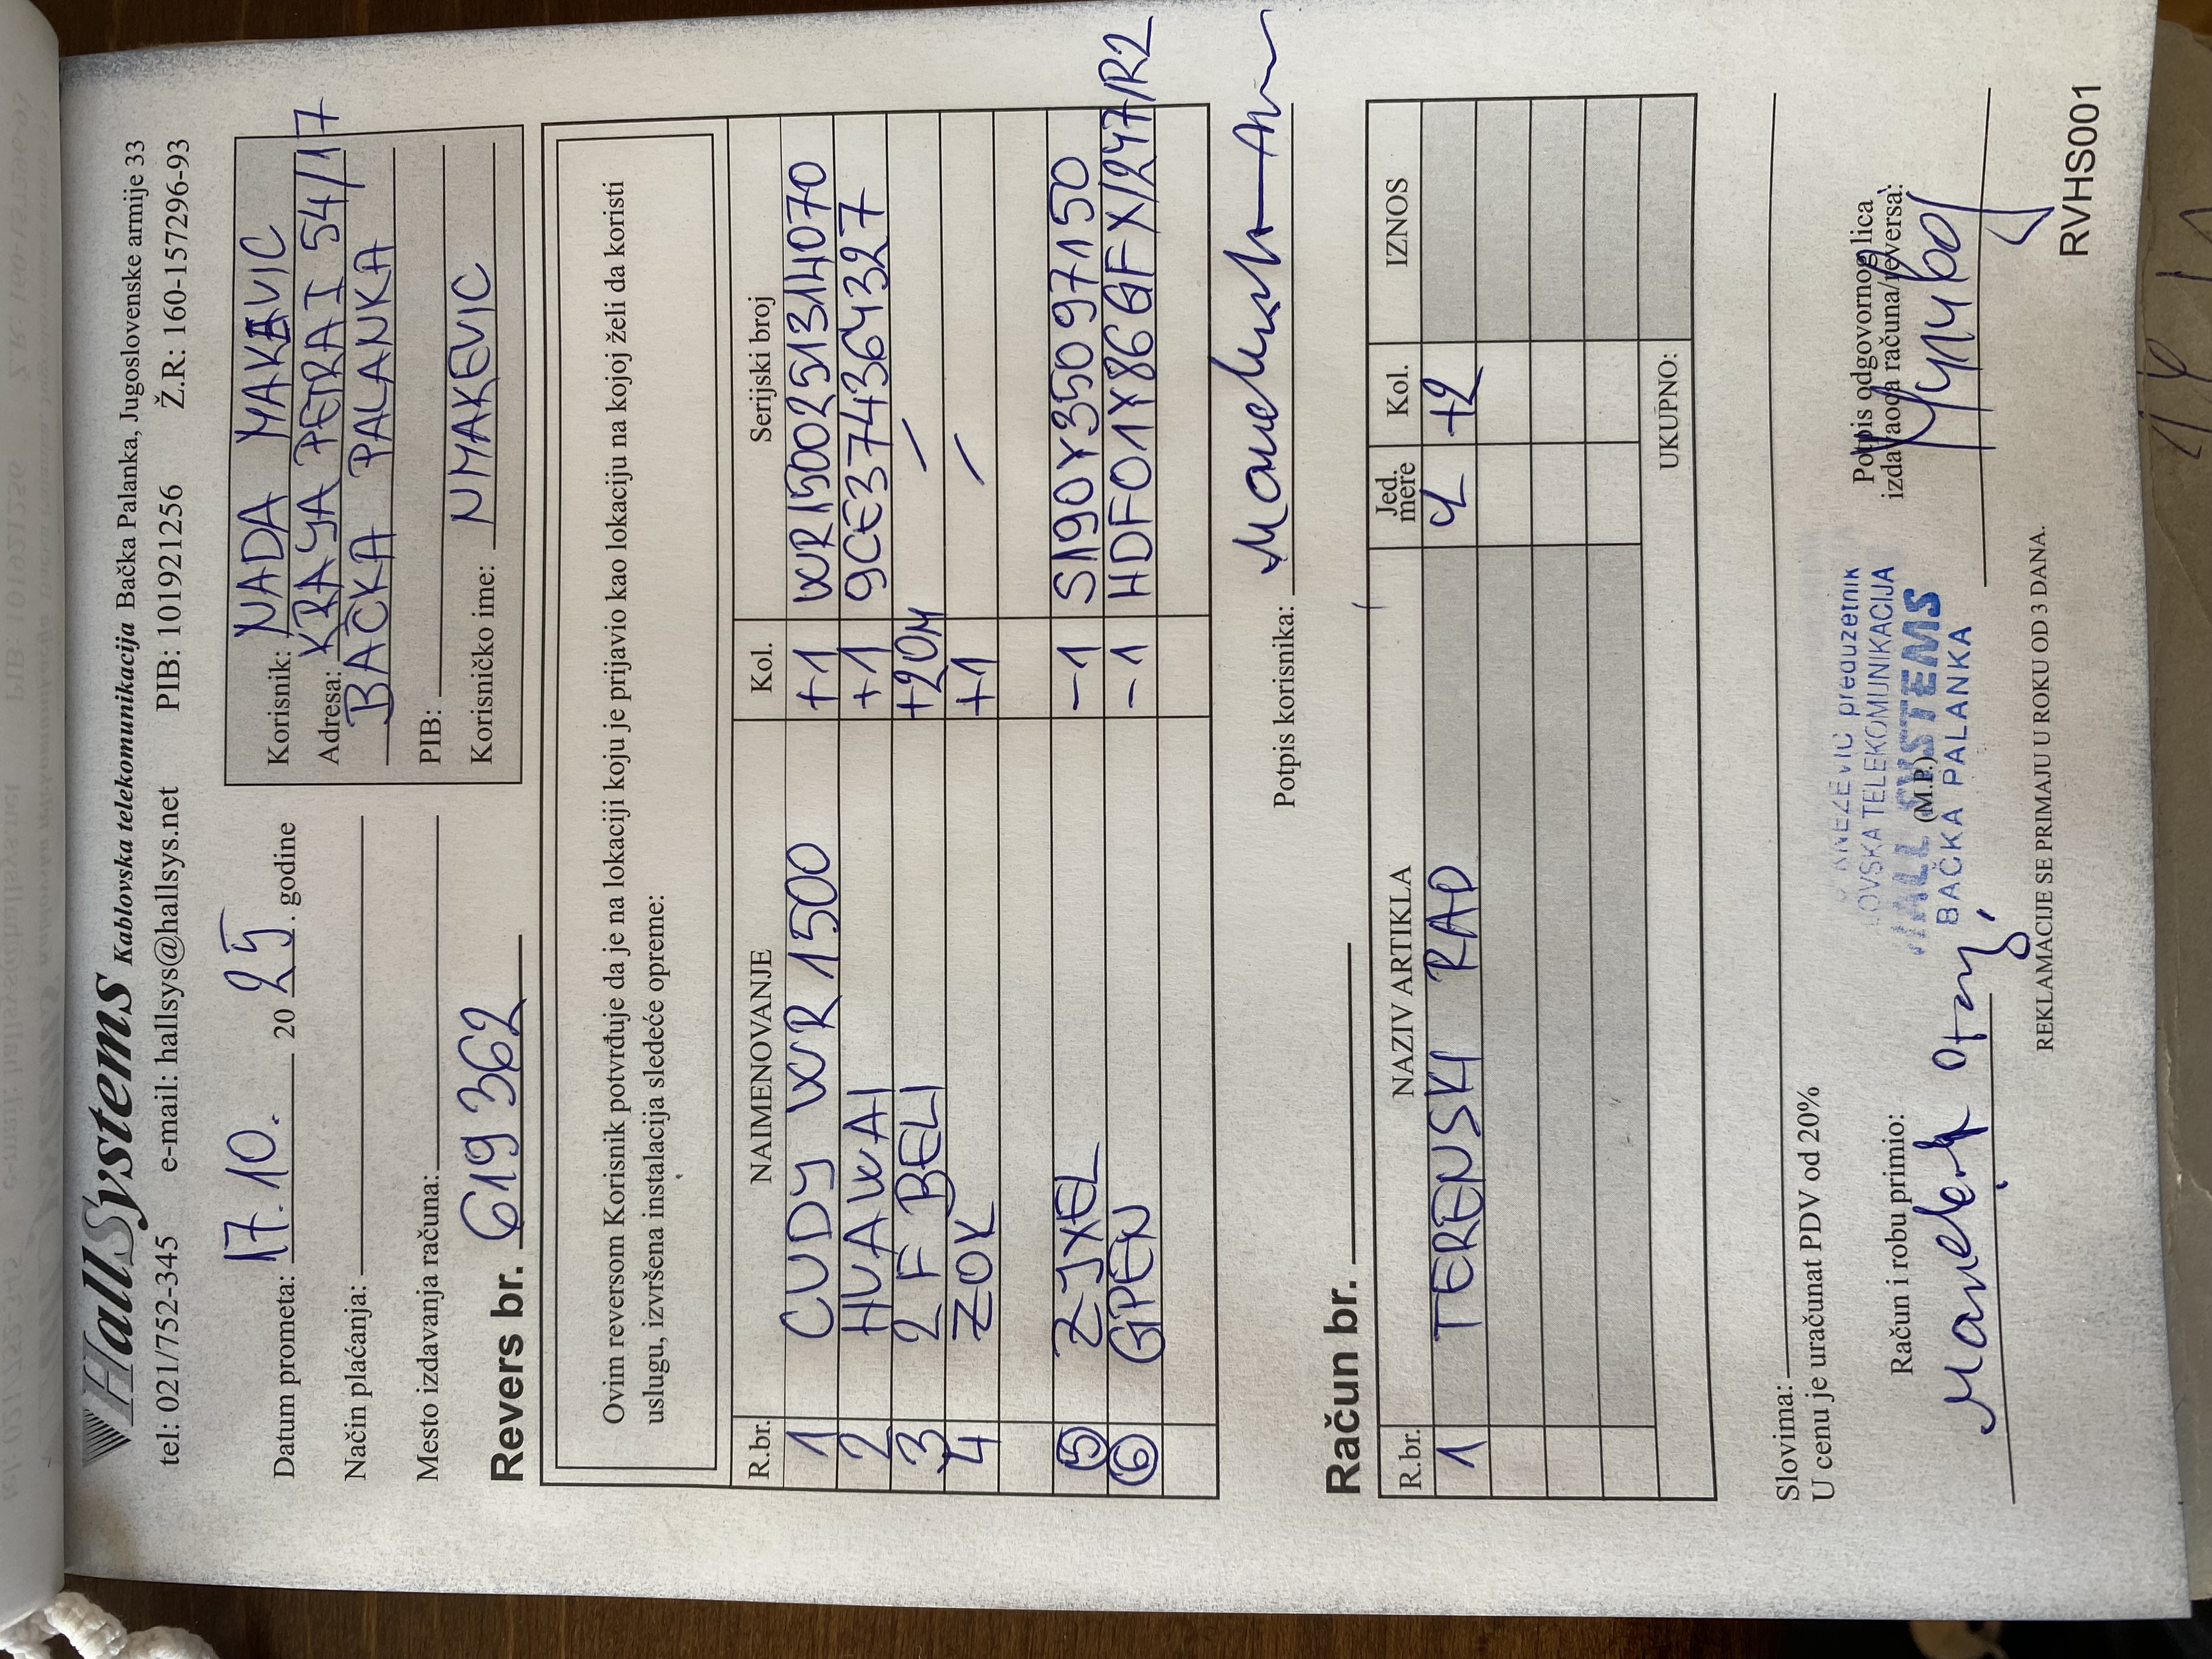 HallSystems Kablovska telekomunikacija Bačka Palanka, Jugoslovenske armije 33
tel: 021/752-345 e-mail: hallsys@hallsys.net PIB: 101921256 Ž.R: 160-157296-93
Datum prometa: 17.10. 20 25. godine
Način plaćanja:
Mesto izdavanja računa:
Revers br. 619 362
Korisnik: NADA MAKEVIC
Adresa: KRAJA PETRA I 54/17
BAČKA PALANKA
PIB:
Korisničko ime: NMAKEVIC
Ovim reversom Korisnik potvrđuje da je na lokaciji koju je prijavio kao lokaciju na kojoj želi da koristi
uslugu, izvršena instalacija sledeće opreme:
R.br. NAIMENOVANJE Kol. Serijski broj
1 CUDY WR 1500 +1 WR1500251314070
2 HUAWAI +1 9CE374364327
3 2 F BELI +20M /
4 ZOK +1 /
5 ZYXEL -1 S190Y35097150
6 GPEN -1 HDF01X86GFX/247/R2
Potpis korisnika:
Račun br.
R.br. NAZIV ARTIKLA Jed. mere Kol. IZNOS
1 TERENSKI RAD +2
UKUPNO:
Slovima:
U cenu je uračunat PDV od 20%
Račun i robu primio:
(M.P.)
preduzetnik
TELEKOMUNIKACIJA
HALL SYSTEMS
BAČKA PALANKA
Potpis odgovornog lica
izdavaoca računa/reversa:
REKLAMACIJE SE PRIMAJU U ROKU OD 3 DANA.
RVHS001